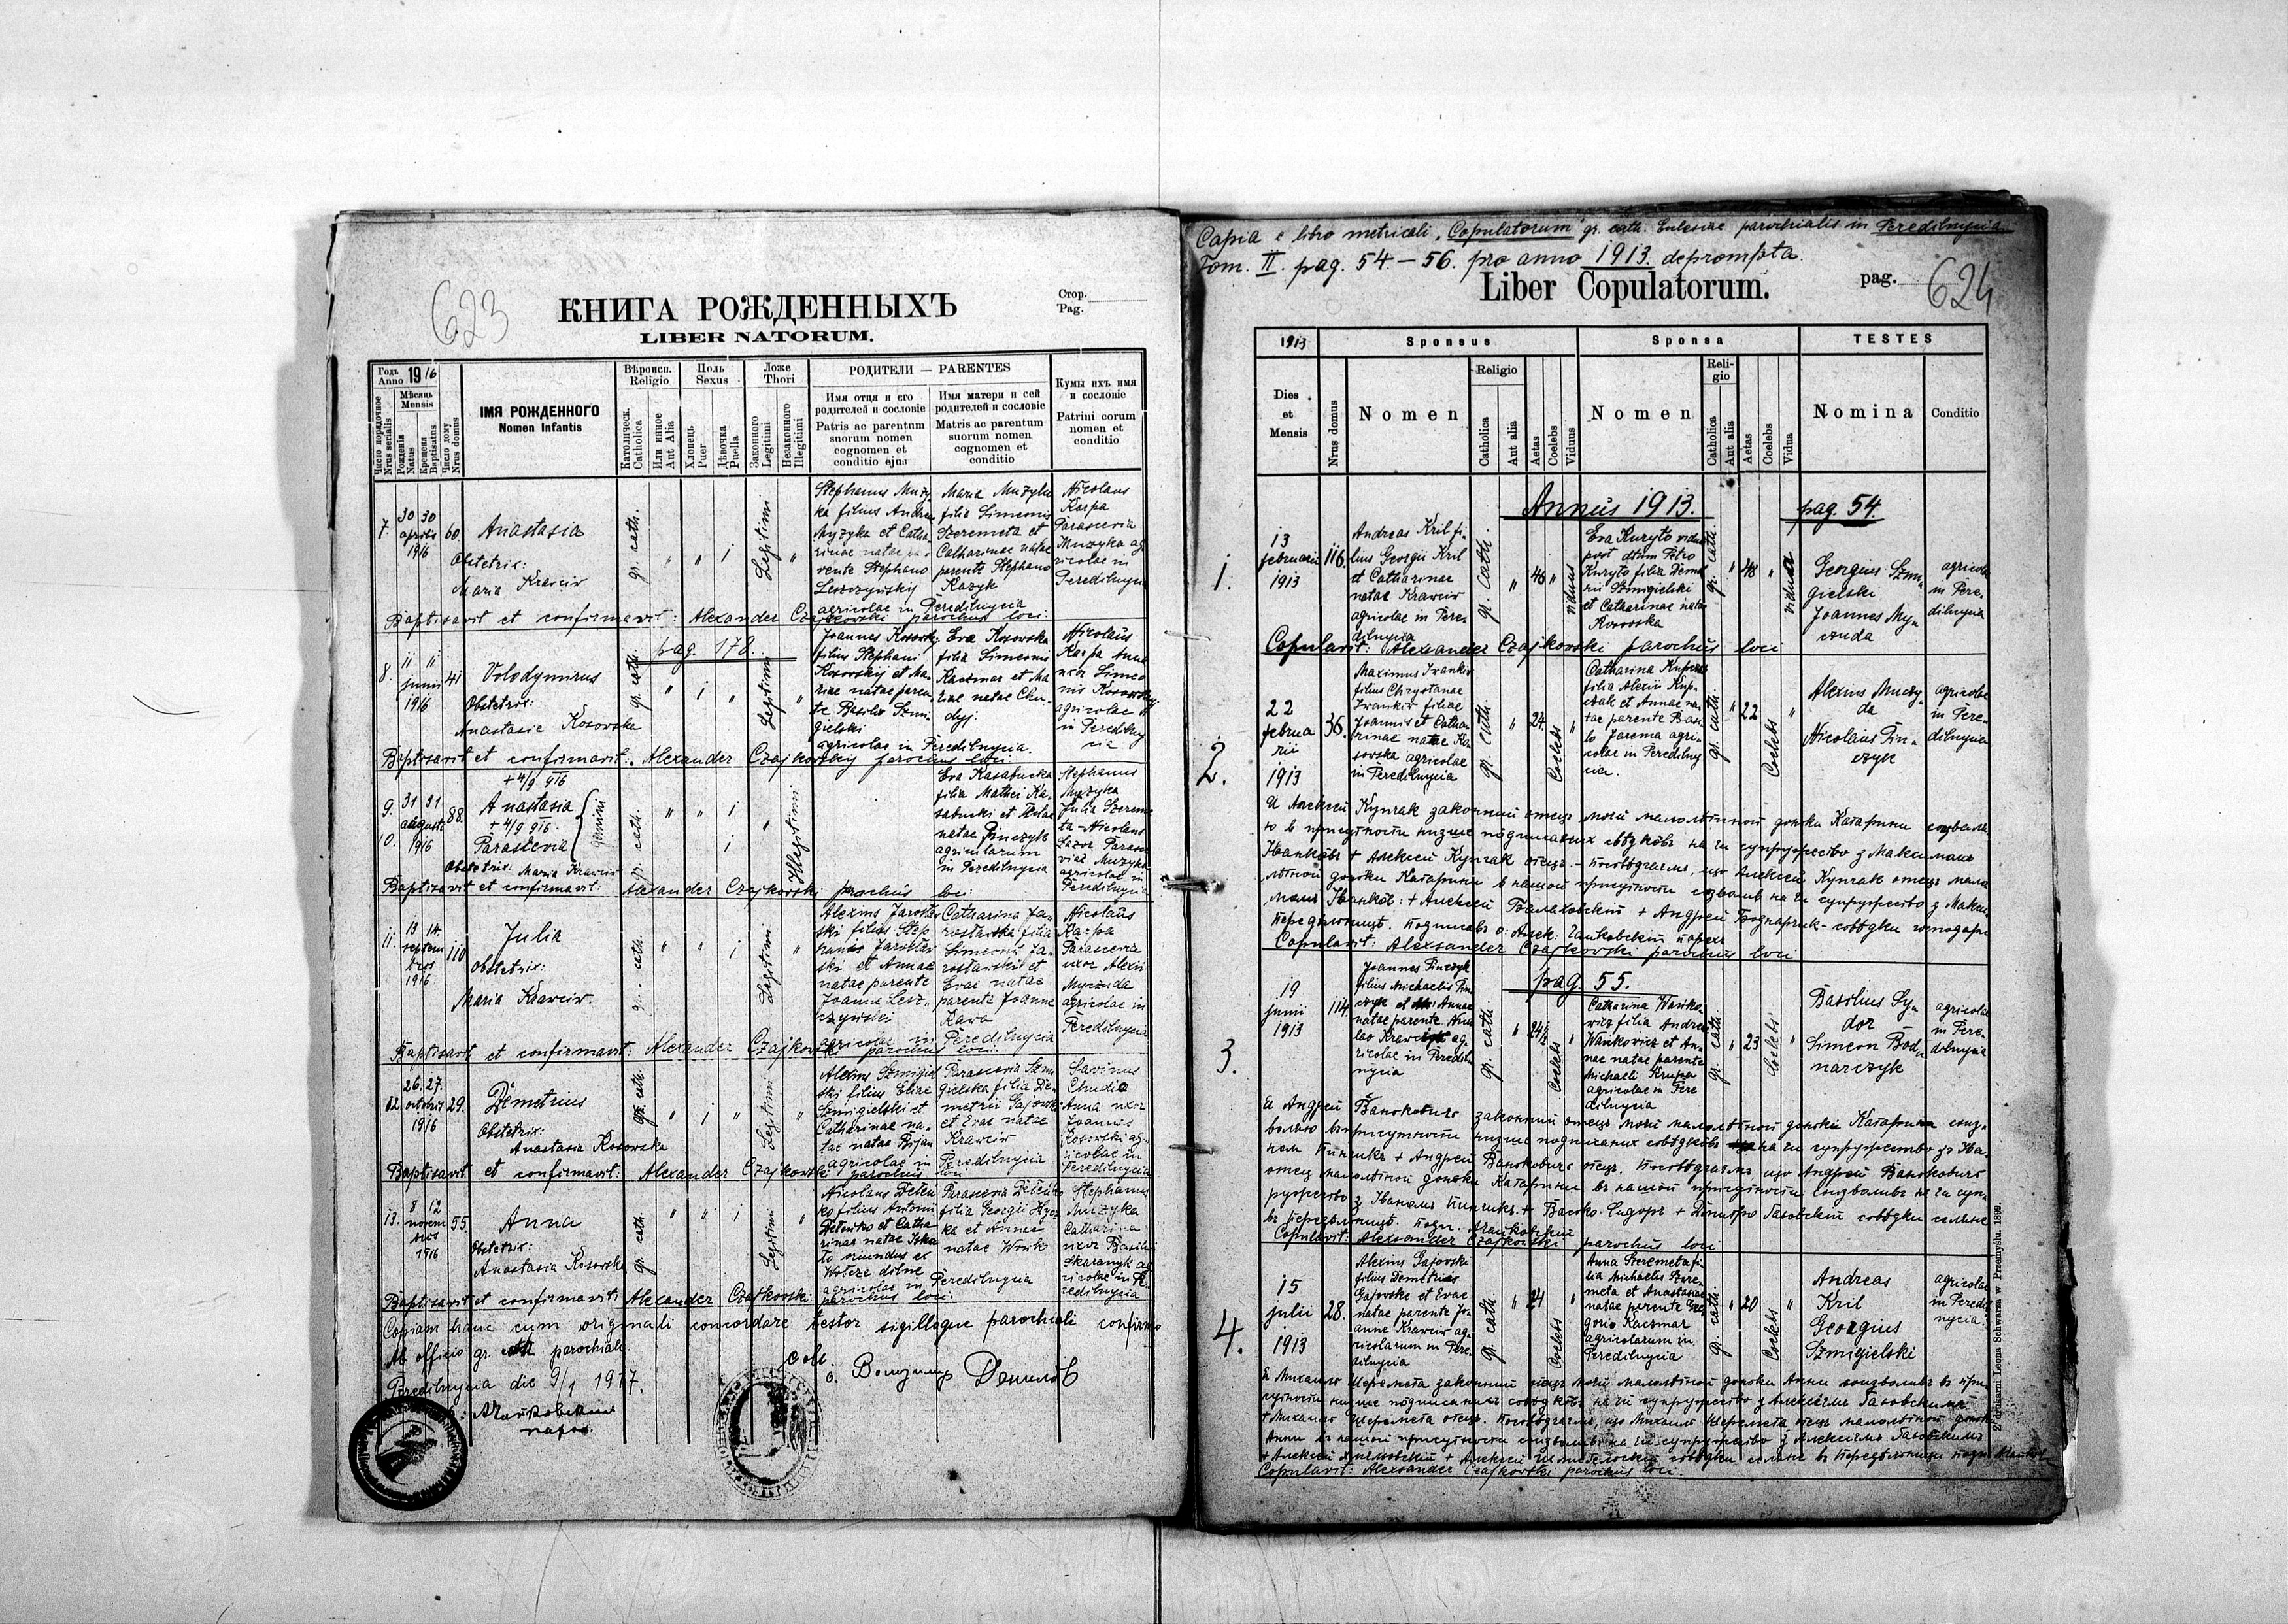 623
КНИГА РОЖДЕННЫХЪ
LIBER NATORUM.
Стор.
Pag.
Годъ Anno 1916
Мѣсяць Mensis
Число порядочное Nrus serialis
Рожденія Natus
Крещенія Baptisatus
Число дому Nrus domus
ІМЯ РОЖДЕННОГО
Nomen Infantis
Вѣроисп. Religio
Католическ. Catholica
Или инное Aut Alia
Полъ Sexus
Хлопець Puer
Дѣвочка Puella
Ложе Thori
Законного Legitimi
Незаконного Illegitimi
РОДИТЕЛИ — PARENTES
Имя отця и его родителей и сословіе
Patris ac parentum suorum nomen cognomen et conditio ejus
Имя матери и ей родителей и сословіе
Matris ac parentum suorum nomen cognomen et conditio
Кумы ихъ имя и сословіе
Patrini eorum nomen et conditio
7. 30 30 aprilis 1916 60
Anastasia
Obstetrix:
Maria Krawciw
gr. cath.
Legitimi
Stephanus Muzy-
ka filius Andrea
Muzyka et Catha-
rinae natae pa-
rente Stephano
Leszczyńskij
Maria Muzyka
filia Simeonis
Szeremeta et
Catharinae natae
parente Stephano
Kazyk
agricolae in Peredilnycia
Nicolaus
Karpa
Parascevia
Muzyka ag
ricolae in
Peredilnycia
Baptisavit et confirmavit: Alexander Czajkovski parochus loci.
pag. 178.
8. 11 11 junii 1916 41
Volodymirus
Obstetrix:
Anastasia Kosovska
gr. cath.
Legitimi
Joannes Kosovskij
filius Stephani
Kosovskij et Ma-
riae natae paren-
te Basilio Szmi-
gielski
Eva Kosowska
filia Simeonis
Kaczmar et Ma
riae natae Chu-
dyj.
agricolae in Peredilnycia.
Nicolaus
Karpa Anna
uxor Simeo
nis Kosowskij
agricolae
in Peredilny
cia
Baptisavit et confirmavit: Alexander Czajkovskij parochus loci.
9. 31 31 augusti 1916 88.
10.
+ 4/9 916
Anastasia
+ 4/9 916.
Parascevia
gemini
Obstetrix: Maria Krawciw
gr. cath.
Illegitimi
Eva Kasabucka
filia Mathei Ka-
sabucki et Theclae
natae Pinczyk
agricolarum
in Peredilnycia
Stephanus
Muzyka
Julia Szereme
ta - Nicolaus
Lazor Parasce
via Muzyka
agricolae in
Peredilnycia
Baptisavit et confirmavit: Alexander Czajkovski parochus loci.
11. 13 14 septem bris 1916 110
Julia
Obstetrix:
Maria Krawciw.
gr. cath.
Legitimi
Alexius Jarosław
ski filius Step
hanis Jarosław
ski et Annae
natae parente
Joanne Lesz-
czyński
Catharina Ja-
rosławska filia
Simeonis Ja-
rosławski et
Evae natae
parente Joanne
Kawa
agricolae in Peredilnycia
Nicolaus
Karpa
Parascevia
uxor Alexii
Myczuda
agricolae in
Peredilnycia
Baptisavit et confirmavit: Alexander Czajkovski parochus loci.
12. 26. 27. octobris 1916 29.
Demetrius
Obstetrix:
Anastasia Kosowska
gr. cath.
Legitimi
Alexius Szmigiel
ski filius Eliae
Szmigielski et
Catharinae na-
tae natae Bojan
Parascevia Szmi
gielska filia De-
metrii Gajowski
et Evae natae
Krawciw
agricolae in Peredilnycia
Savinus
Chudio
Anna uxor
Joannis
Kosowski ag-
ricolae in
Peredilnycia
Baptisavit et confirmavit: Alexander Czajkovski parochus loci.
13. 8 12 novem bris 1916 55.
Anna
Obstetrix:
Anastasia Kosowska
gr. cath.
Legitimi
Nicolaus Deten
ko filius Antonii
Detenko et Catha
rinae natae
to oriundus ex
Wołcze dolne
Parascevia Detenko
filia Georgii Hyoz
ka et Annae
natae Wosik
agricolae in Peredilnycia
Stephanus
Muzyka
Catharina
uxor Basilii
Skaranyk ag
ricolae in Pe
redilnycia
Baptisavit et confirmavit Alexander Czajkovski parochus loci.
Copiam hanc cum originali concordare testor sigilloque parochiali confirmo
Ab officio gr. cath parochiali.
Peredilnycia die 9/1 1917.
А Чайковскій
парох.
Coll.
о. Володимир
624
Copia e libro metricali „Copulatorum" gr. cath. Eclesiae parochialis in Peredilnycia
Tom. II. pag. 54.—56. pro anno 1913. deprompta.
Liber Copulatorum.
pag.
1913
Dies et Mensis
Nrus domus
Sponsus
Nomen
Religio
Catholica
Aut alia
Aetas
Coelebs
Viduus
Sponsa
Nomen
Religio
Catholica
Aut alia
Aetas
Coelebs
Vidua
TESTES
Nomina
Conditio
Annus 1913.
pag. 54.
1.
13 februarii 1913
116.
Andreas Kril fi-
lius Georgii Kril
et Catharinae
natae Krawciw
agricolae in Pere-
dilnycia
gr. cath.
46
viduus
Eva Kuryło vidua
post dtum Petro
Kuryło filia Deme
trii Szmigielski
et Catharinae natae
Kosovska
gr. cath.
48
vidua
Georgius Szmi-
gielski
Joannes My-
czuda
agricolae
in Pere-
dilnycia
Copulavit: Alexander Czajkovski parochus loci
2.
22 februa rii 1913
36.
Maximus Iwankiw
filius Chrystanae
Iwankiw filiae
Joannis et Catha-
rinae natae Ko-
sovska agricolae
in Peredilnycia
gr. cath.
24.
Coelebs
Catharina Kupczak
filia Alexii Kup-
czak et Annae na-
tae parente Basi-
lo Jarema agri-
colae in Peredilny
cia.
gr. cath.
22
Coelebs
Alexius Muczy-
da
Nicolaus Pin-
czyk
agricolae
in Pere-
dilnycia
Я Алексей Купчак законный отець моей малолѣтной доньки Катарини
ю в присутности низше подписаных свѣдкôвъ на еи супружество з Максимомъ
Иванкôвъ + Алексей Купчак отець. — Посвѣдчаемъ, що Алексей Купчак отець мало
лѣтной доньки Катарини в нашой присутности созваивъ на еи супружество з Макси
момъ Иванкôвъ: + Алексей + Андрей Боднарчик - свѣдки господари
Передѣльниця. Подписавъ о: Алек: Чайковскій парох
Copulavit: Alexsander Czajkovski parochus loci
pag. 55.
3.
19 junii 1913
114.
Joannes Pinczyk
filius Michaelis Pin
czyk et Annae
natae parente Nico
lao Krawciw ag
ricolae in Peredil-
nycia
gr. cath
24½
Coelebs
Catharina Wańko-
wicz filia Andrea
Wańkowicz et An-
nae natae parente
Michaeli Krupa
agricolae in Pere
dilnycia
gr. cath
23
Coelebs
Basilius Sy-
dor
Simeon Bod-
narczyk
agricolae
in Pere-
dilnycia
Я Андрей Ваньковичъ законный отець моей малолѣтной доньки Катарини созв-
воляю въ присутности низше подписаных свѣдкôвъ на еи супружество зъ Ива-
номъ Пинчикъ + Андрей Ваньковичъ отець. Посвѣдчаемъ що Андрей Ваньковичъ
отець малолѣтной доньки Катарини въ нашой присутности созволивъ на еи суп-
ружество з Иваномъ Пинчикъ + Васько Сидоръ + Дмитро Гаёвскій свѣдки селяне
въ Передѣльници. Подп. А Чайковскій
Copulavit: Alexsander Czajkovski parochus loci
4.
15 julii 1913
28.
Alexius Gajovski
filius Demetrius
Gajovske et Evae
natae parente Jo-
anne Krawciw ag-
ricolarum in Pere-
dilnycia
gr. cath.
24
Coelebs
Anna Szeremeta fi-
lia Michaelis Szere-
meta et Anastasiae
natae parente Gre
gorio Kaczmar
agricolarum in
Peredilnycia
gr. cath.
20
Coelebs
Andreas
Kril
Georgius
Szmigielski
agricolae
in Peredil
nycia
Я Михаилъ Шеремета законный отець моей малолѣтной доньки Анни созволяю въ при-
сутности низше подписаних свѣдкôвъ на еи супружество з Алексеемъ Гаёвскимъ
+ Михаилъ Шеремета отець. Посвѣдчаемъ, що Михаилъ Шеремета отець малолѣтной доньки
Анни въ нашой присутности созволивъ на еи супружество з Алексеемъ Гаёвскимъ
+ Алексей + Алексей Шмигельскій свѣдки селяне въ Передѣльници подп.
Copulavit: Alexsander Czajkovski parochus loci.
Z drukarni Leona Schwarza w Przemyślu. 1899.